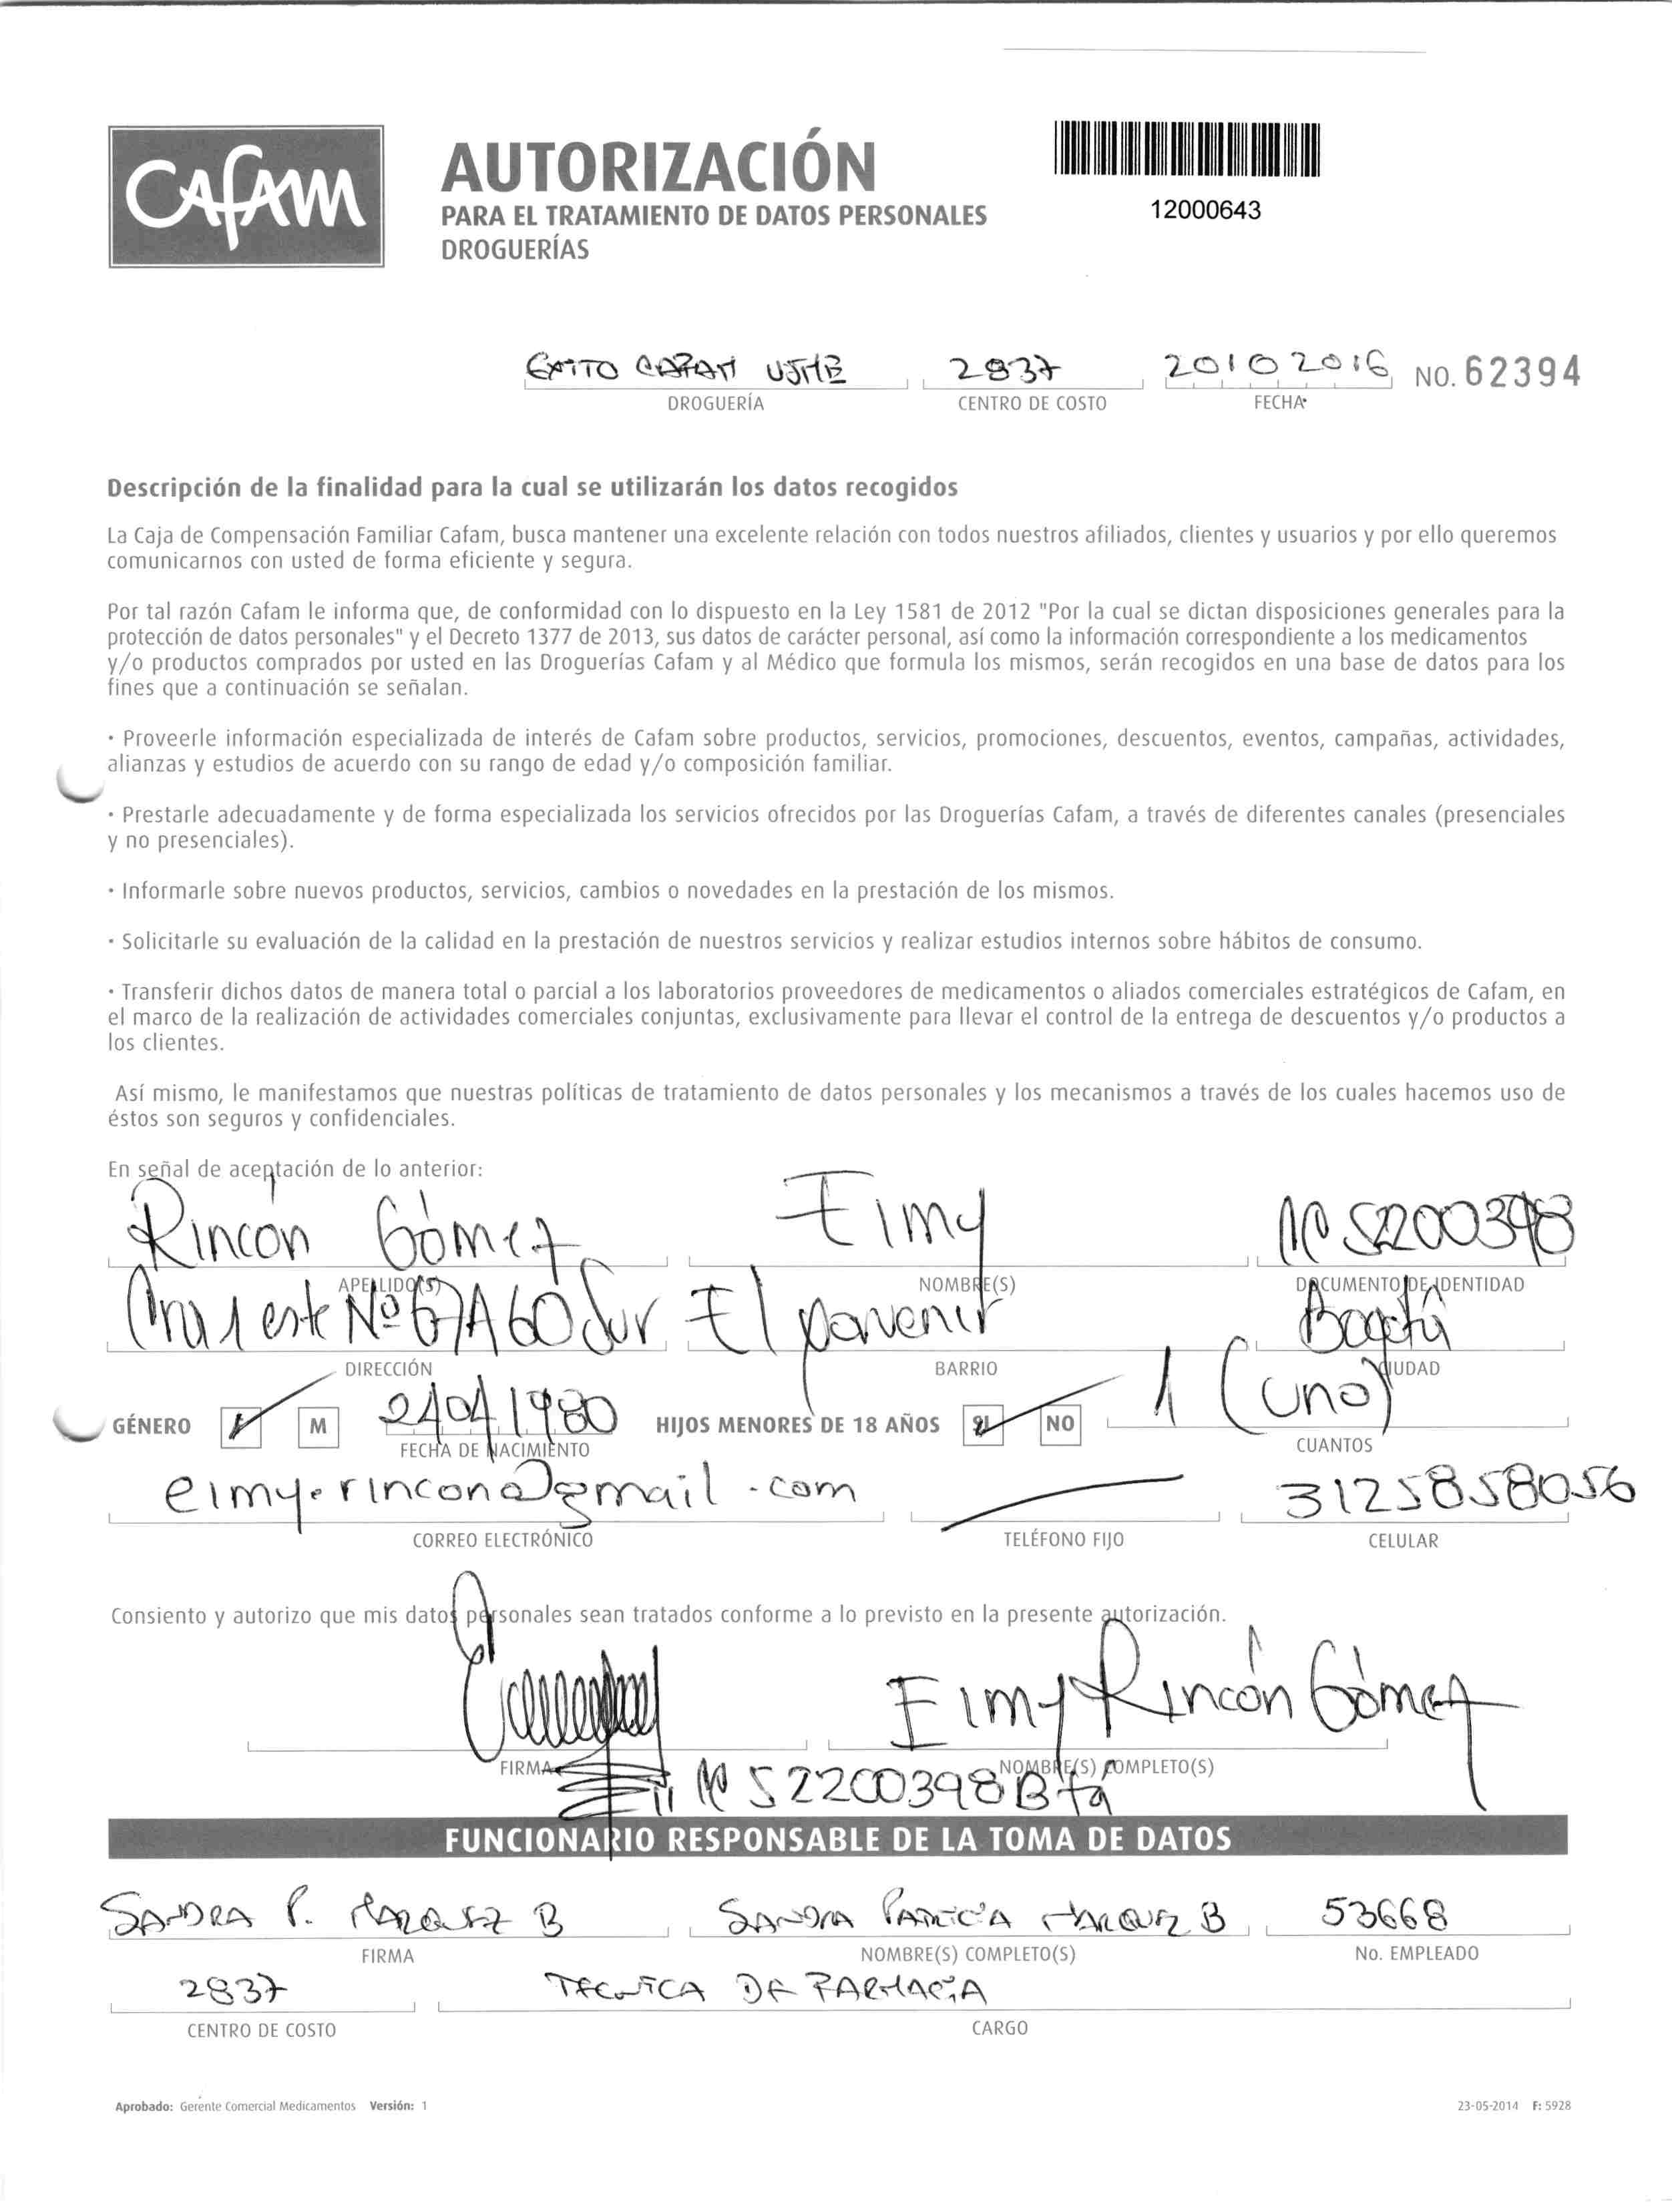 CAFAM
AUTORIZACIÓN
PARA EL TRATAMIENTO DE DATOS PERSONALES
DROGUERÍAS
12000643
EXITO CAFAM USME 2837 20102016 NO. 62394
DROGUERÍA CENTRO DE COSTO FECHA
Descripción de la finalidad para la cual se utilizarán los datos recogidos
La Caja de Compensación Familiar Cafam, busca mantener una excelente relación con todos nuestros afiliados, clientes y usuarios y por ello queremos
comunicarnos con usted de forma eficiente y segura.
Por tal razón Cafam le informa que, de conformidad con lo dispuesto en la Ley 1581 de 2012 "Por la cual se dictan disposiciones generales para la
protección de datos personales" y el Decreto 1377 de 2013, sus datos de carácter personal, así como la información correspondiente a los medicamentos
y/o productos comprados por usted en las Droguerías Cafam y al Médico que formula los mismos, serán recogidos en una base de datos para los
fines que a continuación se señalan.
· Proveerle información especializada de interés de Cafam sobre productos, servicios, promociones, descuentos, eventos, campañas, actividades,
alianzas y estudios de acuerdo con su rango de edad y/o composición familiar.
· Prestarle adecuadamente y de forma especializada los servicios ofrecidos por las Droguerías Cafam, a través de diferentes canales (presenciales
y no presenciales).
· Informarle sobre nuevos productos, servicios, cambios o novedades en la prestación de los mismos.
· Solicitarle su evaluación de la calidad en la prestación de nuestros servicios y realizar estudios internos sobre hábitos de consumo.
· Transferir dichos datos de manera total o parcial a los laboratorios proveedores de medicamentos o aliados comerciales estratégicos de Cafam, en
el marco de la realización de actividades comerciales conjuntas, exclusivamente para llevar el control de la entrega de descuentos y/o productos a
los clientes.
Así mismo, le manifestamos que nuestras políticas de tratamiento de datos personales y los mecanismos a través de los cuales hacemos uso de
éstos son seguros y confidenciales.
En señal de aceptación de lo anterior:
Rincón Gómez Eimy 52200398
APELLIDO(S) NOMBRE(S) DOCUMENTO DE IDENTIDAD
Cra 1 este Nº 67A60 Sur El porvenir Bogotá
DIRECCIÓN BARRIO CIUDAD
GÉNERO M 24041980 HIJOS MENORES DE 18 AÑOS SI NO 1 (uno)
FECHA DE NACIMIENTO CUANTOS
eimy.rincon@gmail.com 3125858056
CORREO ELECTRÓNICO TELÉFONO FIJO CELULAR
Consiento y autorizo que mis datos personales sean tratados conforme a lo previsto en la presente autorización.
Eimy Rincón Gómez
FIRMA NOMBRE(S) COMPLETO(S)
52200398 Bta
FUNCIONARIO RESPONSABLE DE LA TOMA DE DATOS
SANDRA P. MARQUEZ B SANDRA PATRICIA MARQUEZ B 53668
FIRMA NOMBRE(S) COMPLETO(S) No. EMPLEADO
2837 TECNICA DE FARMACIA
CENTRO DE COSTO CARGO
Aprobado: Gerente Comercial Medicamentos Versión: 1 23-05-2014 F: 5928